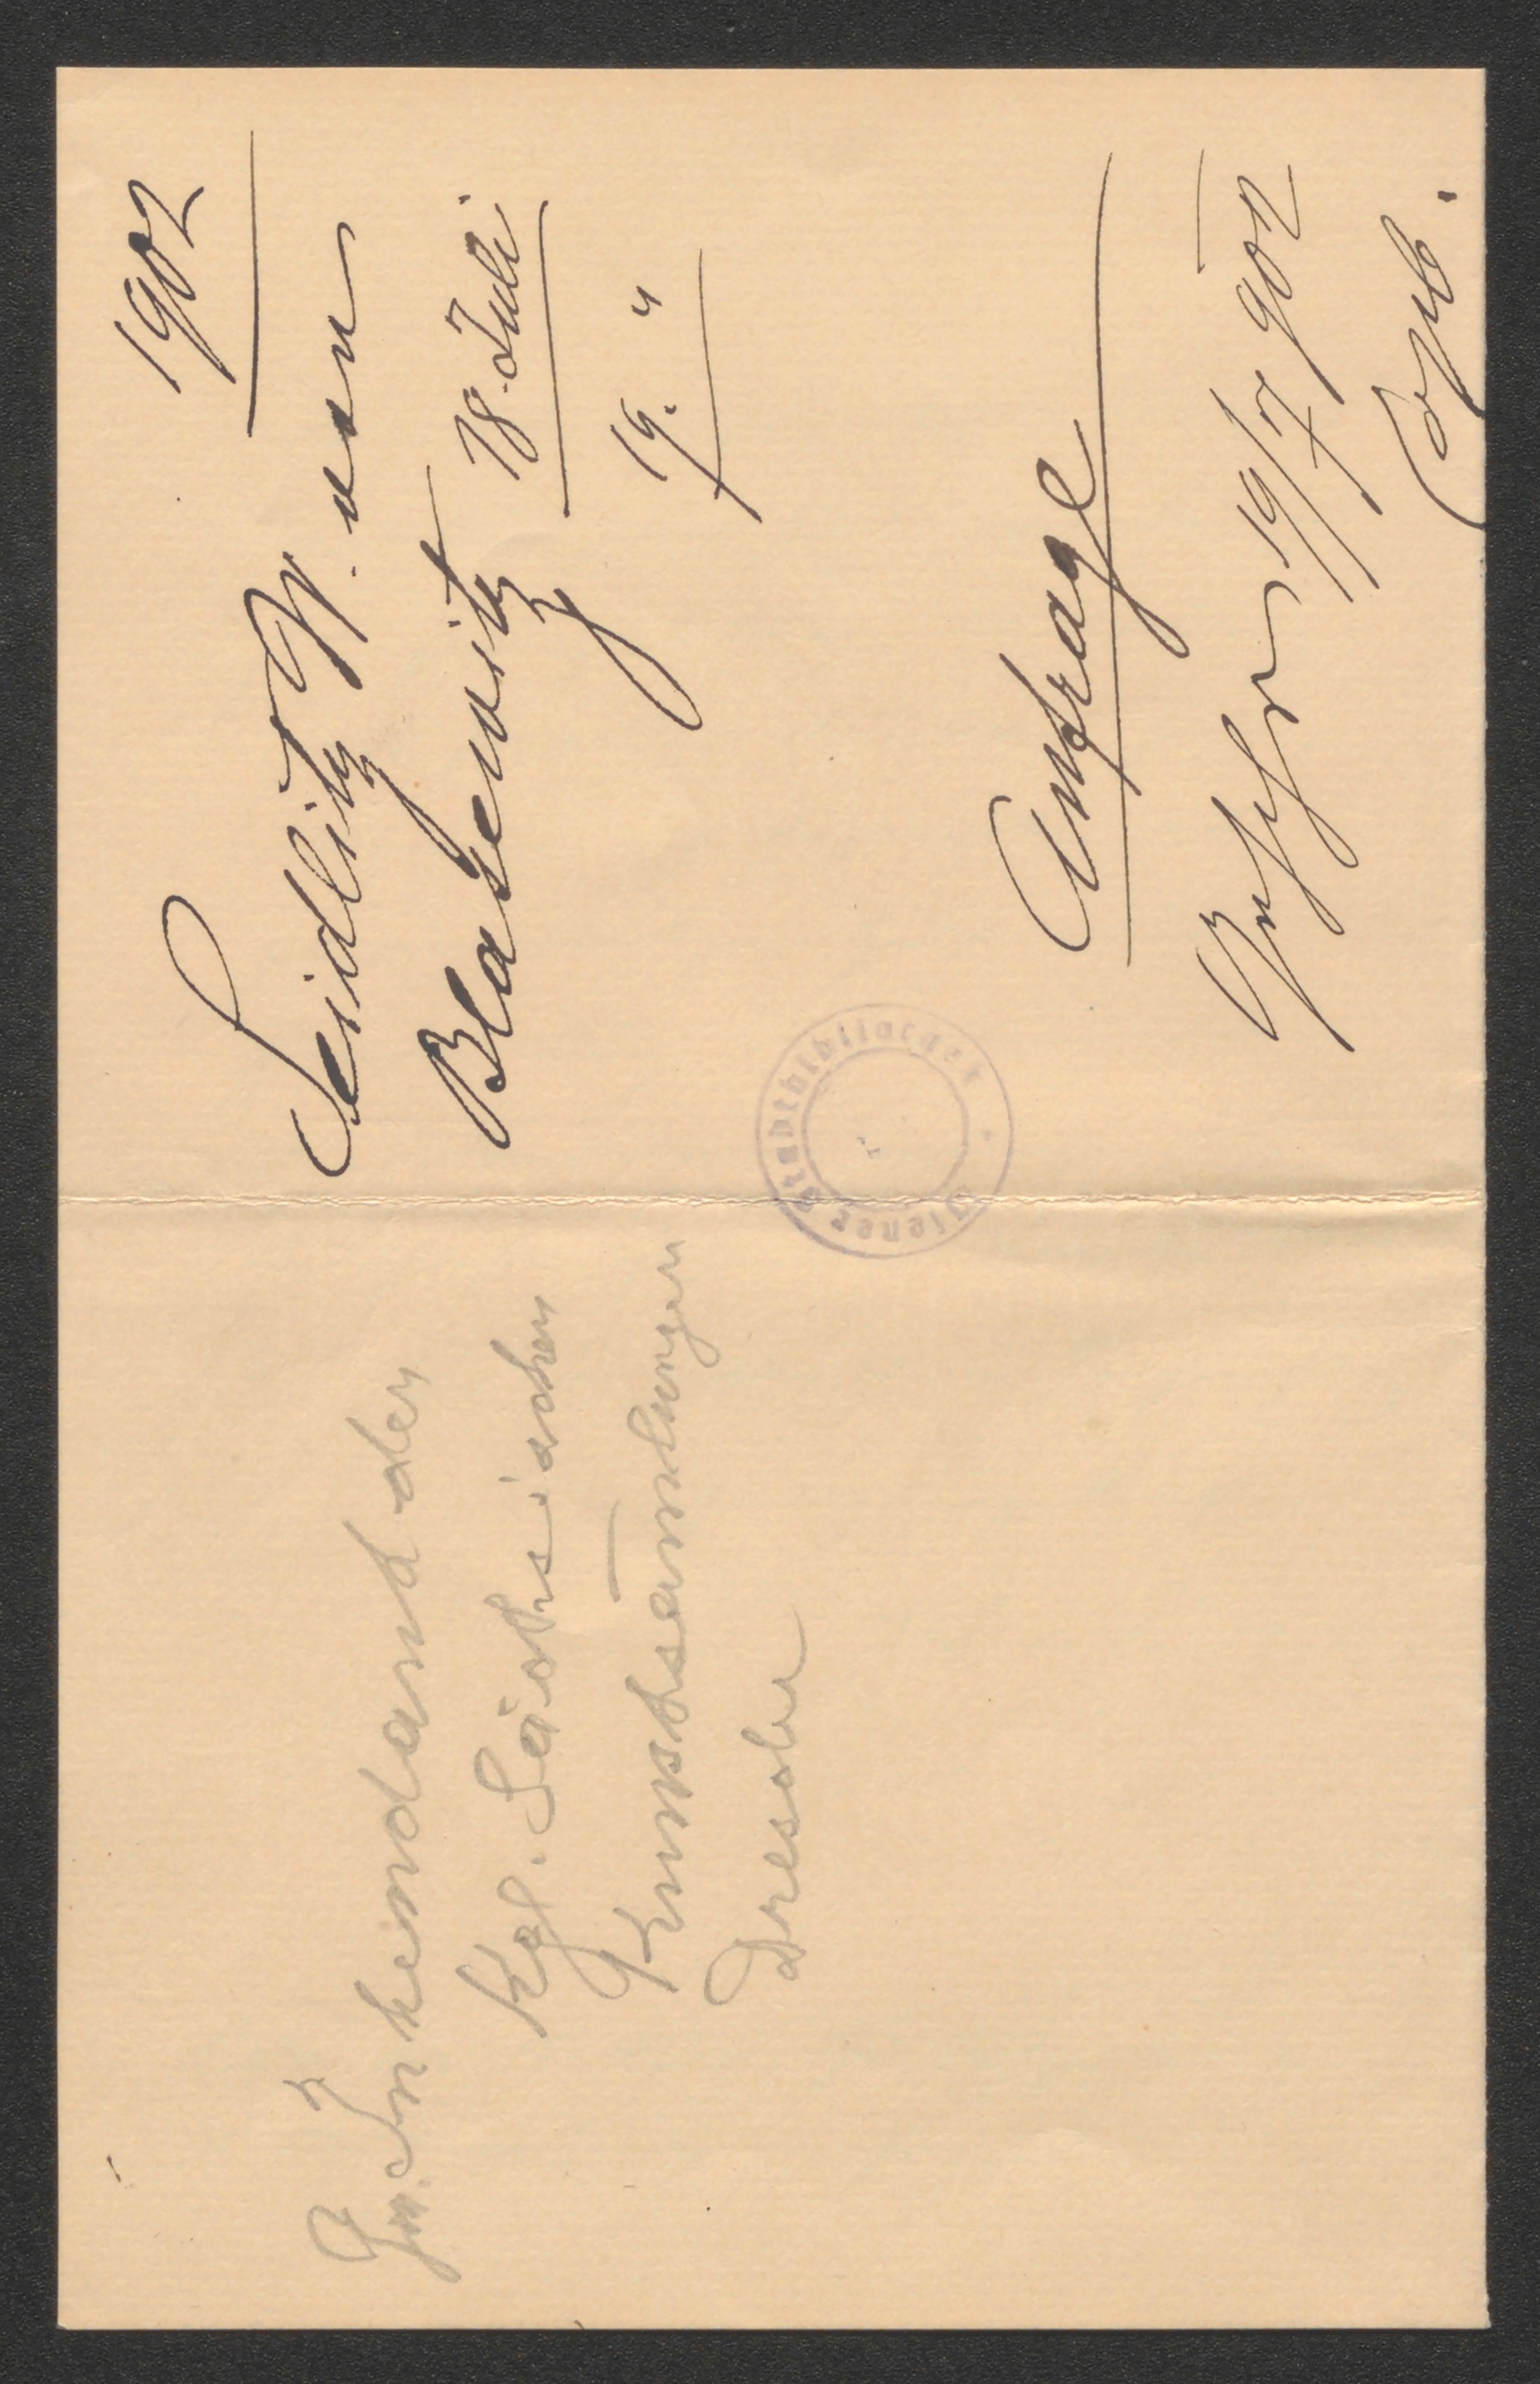 1902
Seidlitz W. von
Blasewitz 18. Juli
19. "
Anfrage
19/7 902
Wiener Stadtbibliothek
Gen. Intendant der
Kgl. Sächsischen
Kunstsam̅lungen
Dresden